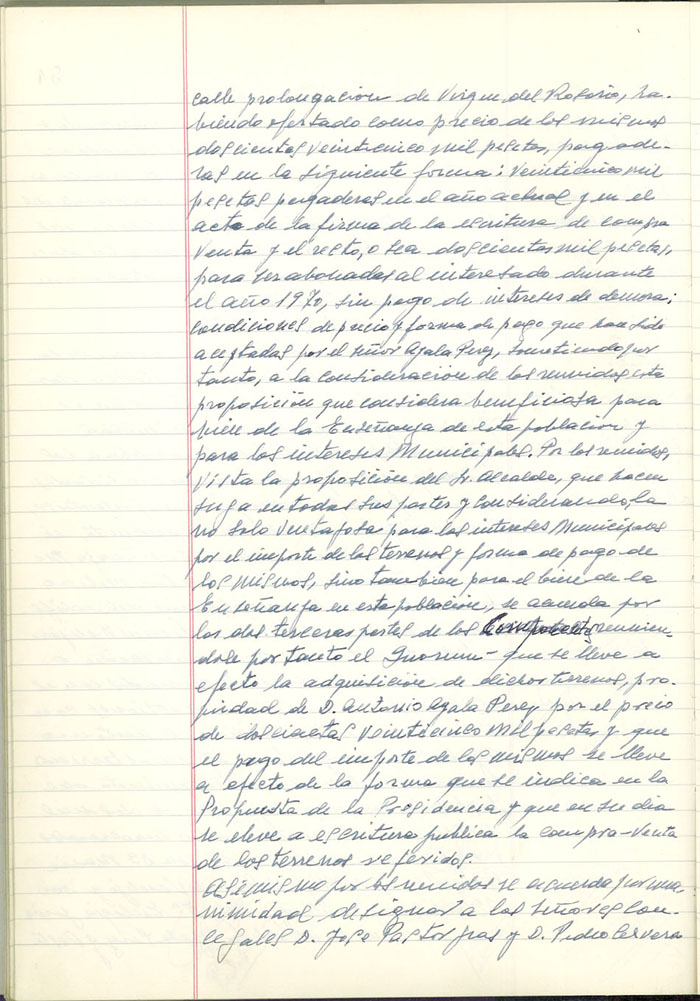 calle prolongación de Virgen del Rosario, ha-
biendo ofertado como precio de los mismos
doscientas veinticinco mil pesetas, pagade-
ras en la siguiente forma: veinticinco mil
pesetas pagaderas en el año actual y en el
acto de la firma de la escritura de compra
venta y el resto, o sea doscientas mil pesetas,
para ser abonadas al interesado durante
el año 1970, sin pago de intereses de demora;
condiciones de precio y forma de pago que han sido
aceptadas por el señor Ayala Perez, sometiendo por
tanto, a la consideración de los reunidos esta
proposición que considera beneficiosa para
bien de la Enseñanza de esta población y
para los intereses Municipales. Por los reunidos,
vista la proposición del Sr. Alcalde, que hacen
suya en todas sus partes y considerandola
no solo ventajosa para los intereses Municipales
por el importe de los terrenos y forma de pago de
los mismos, sino tambien para el bien de la
Enseñanza en esta población, se acuerda por
las dos terceras partes de los reunien-
dose por tanto el Quorum- que se lleve a
efecto la adquisición de dichos terrenos, pro-
piedad de D. Antonio Ayala Perez por el precio
de doscientas veinticinco mil pesetas y que
el pago del importe de los mismos se lleve
a efecto de la forma que se indica en la
Propuesta de la Presidencia y que en su dia
se eleve a escritura publica la compra-venta
de los terrenos referidos.
Asimismo por los reunidos se acuerda por una-
nimidad designar a los señores Con-
cejales D. Jose Pastor Gras y D. Pedro Cervera